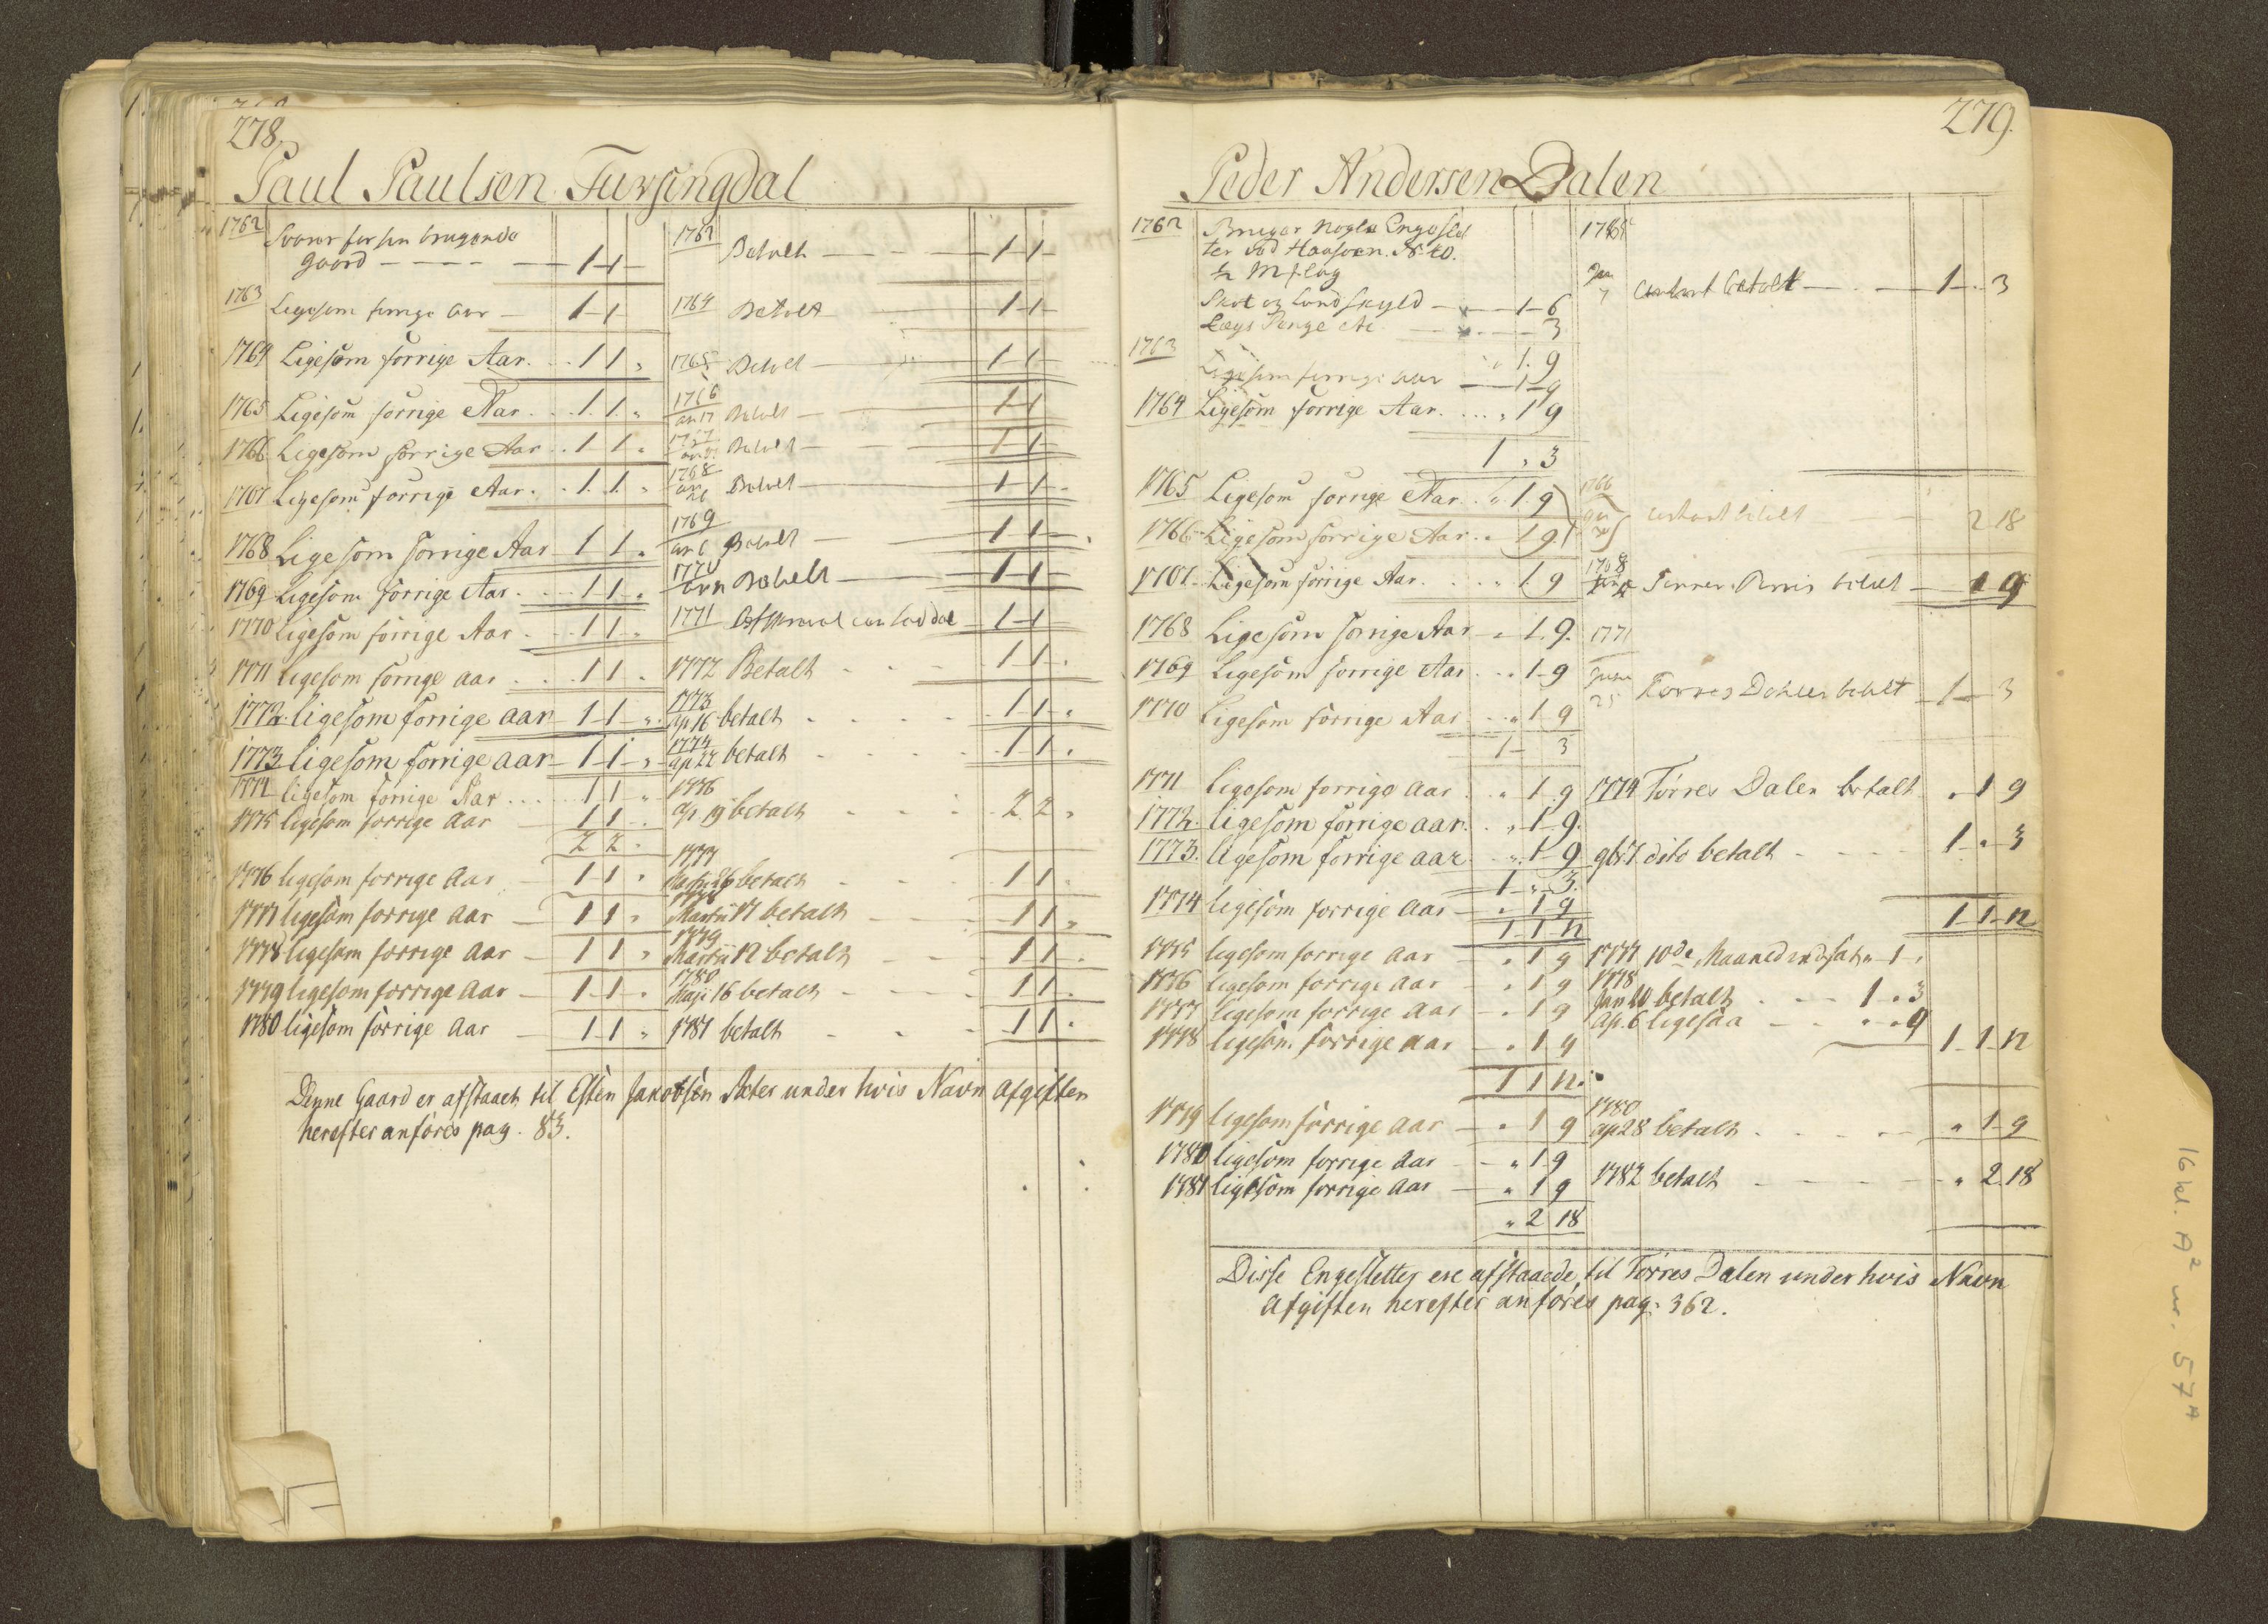 278.
Paul Paulsen Fursingdal
1762 Svarer for sin brugende
gaard - - - - 1 - 1 -
1763 Ligesom forrige Aar - 1 - 1
1764 Ligesom forrige Aar. . . 1 1 "
1765 Ligesom forrige Aar . . 1. 1. "
1766 Ligesom forrige Aar . . 1 1 "
1767 Ligesom forrige Aar. . 1. 1. "
1768 Ligesom forrige Aar - 1 1 "
1769 Ligesom forrige Aar . . . 1 1 "
1770 Ligesom forrige Aar . . . 1 1 "
1771 ligesom forrige aar . . . 1 1 "
1772. ligesom forrige aar - 1 - 1 - "
1773 ligesom forrige aar - 1 - 1 - "
1774 ligesom forrige Aar . . . 1 1 "
1775 ligesom forrige Aar - 1 1 "
2 2 "
1776 ligesom forrige Aar - 1 1 "
1777 ligesom forrige Aar - 1 1 "
1778 ligesom forrige Aar - 1 1 "
1779 ligesom forrige Aar - 1 1 "
1780 ligesom forrige Aar - 1 1 "
Betalt - - - 1 - 1 -
1764 Betalt - 1 - 1 -
1765 Betalt - 1 - 1 -
1766
17 Betalt - 1 - 1
1767
Betalt - 1 - 1 -
1768
26 Betalt - 1 - 1 -
1769
6 Betalt - 1 - 1 -
1770
Betalt - 1 - 1 -
1771 - 1 - 1
1772 Betalt - - - 1 1 "
1773
Ap 16 betalt . . . . 1 1 "
1774
ap 22 betalt . . . . 1 1 "
1776
Ap 19 betalt . . . 2 2 "
1777
26 betalt . . 1 1 "
1778
Martii 17 betalt - - - 1 1 "
1779
Martii 12 betalt - - - 1 1 "
1780
Maji 16 betalt - - - - 1 1 "
1781 betalt - - - 1 1 "
Denne Gaard er afstaaet til Esten Jakobsen Sæter under hvis Navn Afgiften
herefter anføres pag. 83.
279.
Peder Andersen Dalen
1762 Bruger nogle Engeslet
ter ved Haasoen. N. 40.
Skat og Landskyld - 1 - 6
Lægs Penge - 3
" 1. 9
1763 Ligesom forrige aar - 1 - 9
1764 Ligesom forrige Aar. . . . " 1 9
1 " 3
1765 Ligesom forrige Aar . " 1. 9
1766 Ligesom forrige Aar . " 1 9
1767. Ligesom forrige Aar. . . . " 1 9
1768 Ligesom forrige Aar - " 1. 9.
1769 Ligesom forrige Aar . . " 1 - 9
1770 Ligesom forrige Aar . . " 1 9
1 - 3
1771 ligesom forrige aar . " 1 9
1772. ligesom forrige aar. . " 1 - 9.
1773. ligesom forrige aar . " 1 - 9
1 - " - 3.
1774 ligesom forrige aar - " 1 9
1 1 12
1775 ligesom forrige aar - " 1 9
1776 ligesom forrige Aar - " 1 9
1777 ligesom forrige Aar - " 1 9
1778 ligesom forrige Aar - " 1 9
1 1 12.
1779 ligesom forrige Aar - " 1 9
1780 ligesom forrige Aar - " 1 9
1781 ligesom forrige Aar - " 1 9
" 2 18
betalt - 1 - " 3
1766
betalt 2 18
1768
betalt - 1 9
1771
Junii
25 Torres Dahlen betalt - 1 - 3
1774 Törres Dalen betalt " 1 9
9br. 7. dito betalt - - - - 1 " 3
1 1 - 12
1777 10de Maaned indsat " 1 "
1778
Jan 20 betalt . - - 1 " 3
Ap. 6 ligesaa - - " " 9
1 - 1 - 12
1780
Ap 28 betalt . . . - " 1 - 9
1782 betalt - - - - " 2 18
Disse Engesletter ere afstaaede til Törres Dalen under hvis Navn
Afgiften herefter anføres pag: 362.
16 kl. A² nr. 57ᴬ